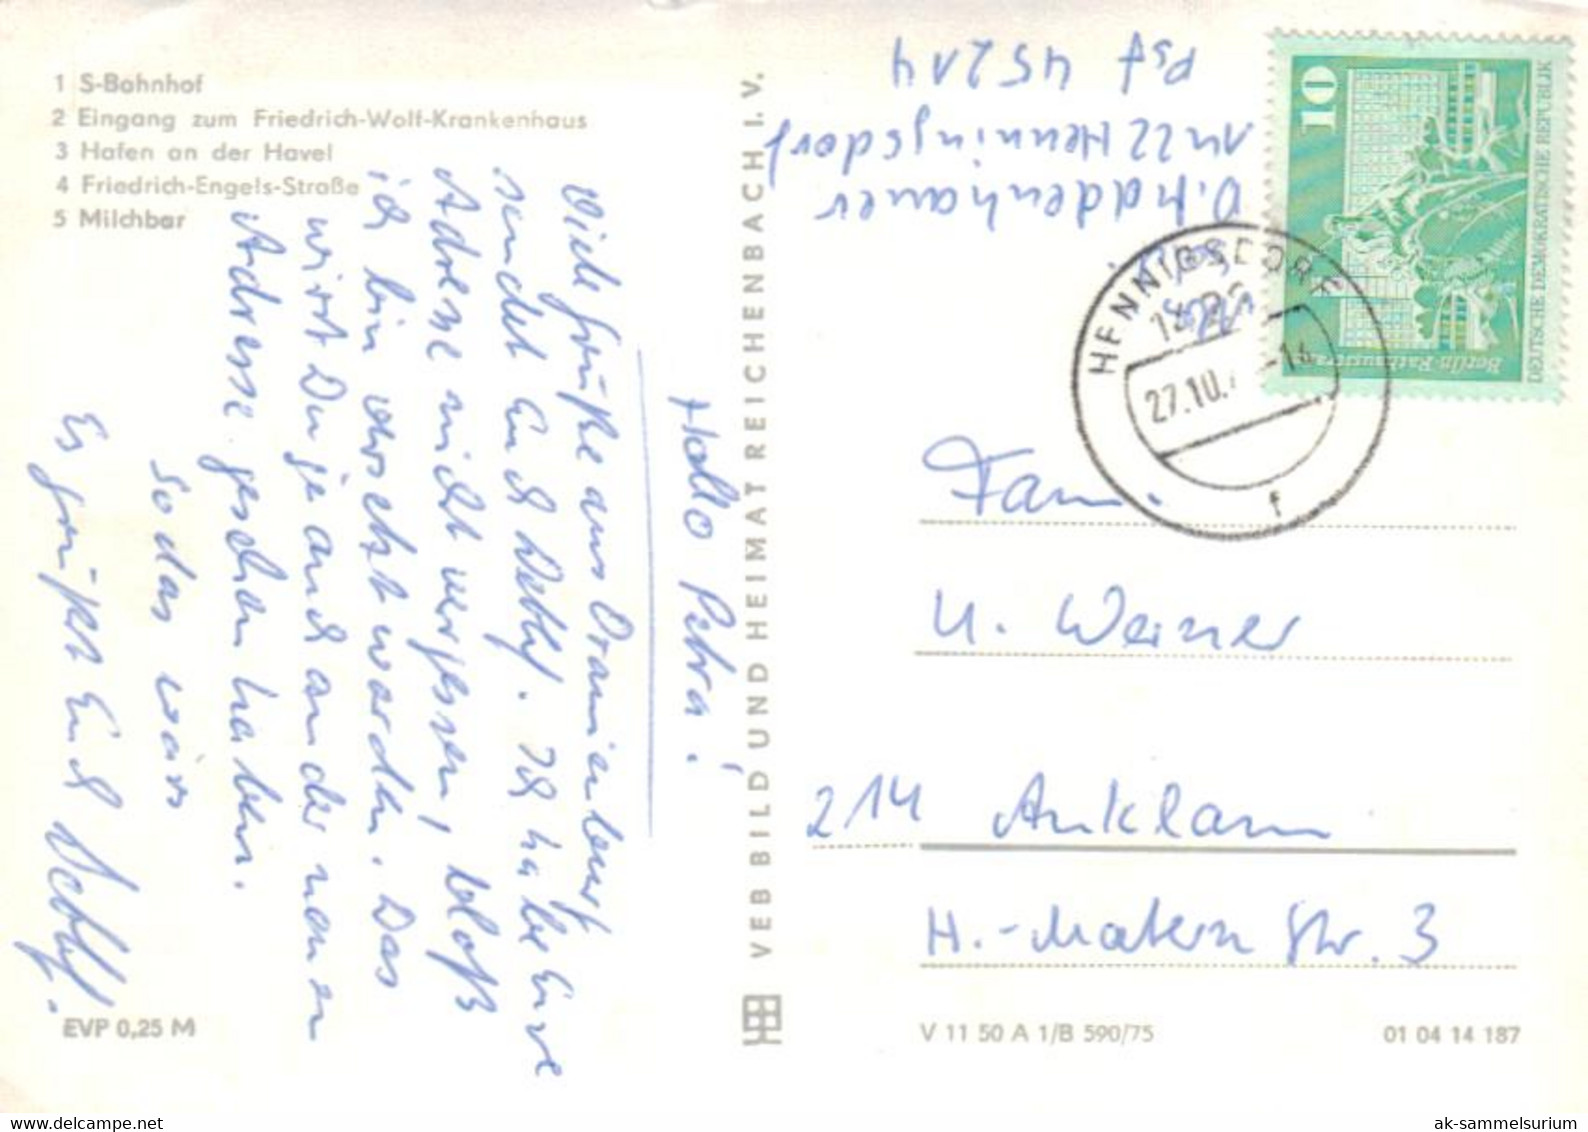 1 S-Bahnhof
2 Eingang zum Friedrich-Wolf-Krankenhaus
3 Hafen an der Havel
4 Friedrich-Engels-Straße
5 Milchbar
Hallo Petra!
Viele Grüße aus Oranienburg
sendet Euch Detlef. Ich habe Eure
Adresse nicht vergessen, bloß
ich bin versetzt worden. Das
wirst Du ja auch an der neuen
Adresse gesehen haben.
So das wars
Es grüßt Euch Detlef.
EVP 0,25 M
VEB BILD UND HEIMAT REICHENBACH I. V.
D.
1422 Henningsdorf
Psf 45214
10
DEUTSCHE DEMOKRATISCHE REPUBLIK
HENNIGSDORF
1422
27.10.
f
Fam.
U. Werner
214 Anklam
H.-Matern Str. 3
V 11 50 A 1/B 590/75
01 04 14 187
https://www.delcampe.net
ak-sammelsurium